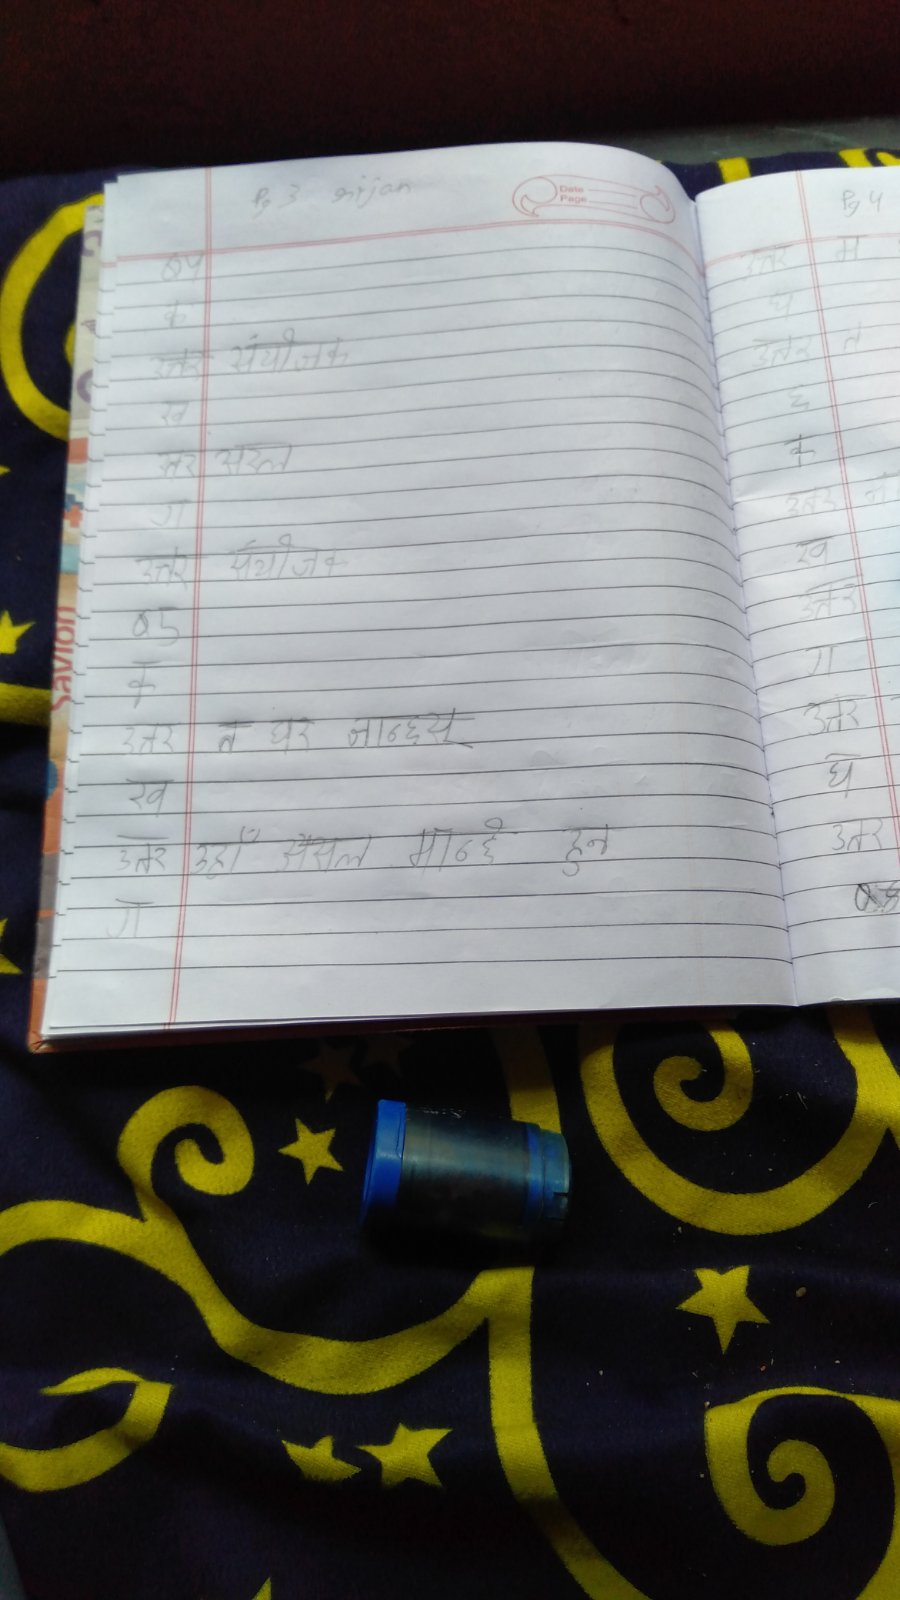 Pg 3 srijan
Date
Page
०४
क
उत्तर संयोजक
ख
उत्तर सरल
ग
उत्तर संयोजक
०5
क
उत्तर त घर जान्छस्
ख
उत्तर उहाँ
हुन
ग
Pg 4
उत्तर म
घ
उत्तर त
६
क
उत्तर
ख
उत्तर
ग
उत्तर
घ
उत्तर
Savlon